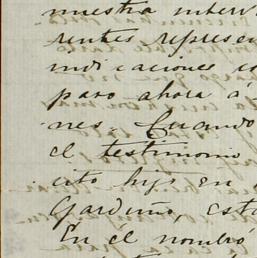 nuestra interv
rentes represen
indicaciones co
paro ahora á
nes. Cuando
el testimonio
cito hijo en
Garduño, está
En el nombró